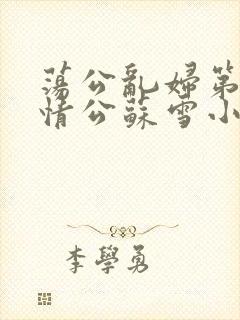 蕩公亂婦第
情公蘇雪小
李學勇